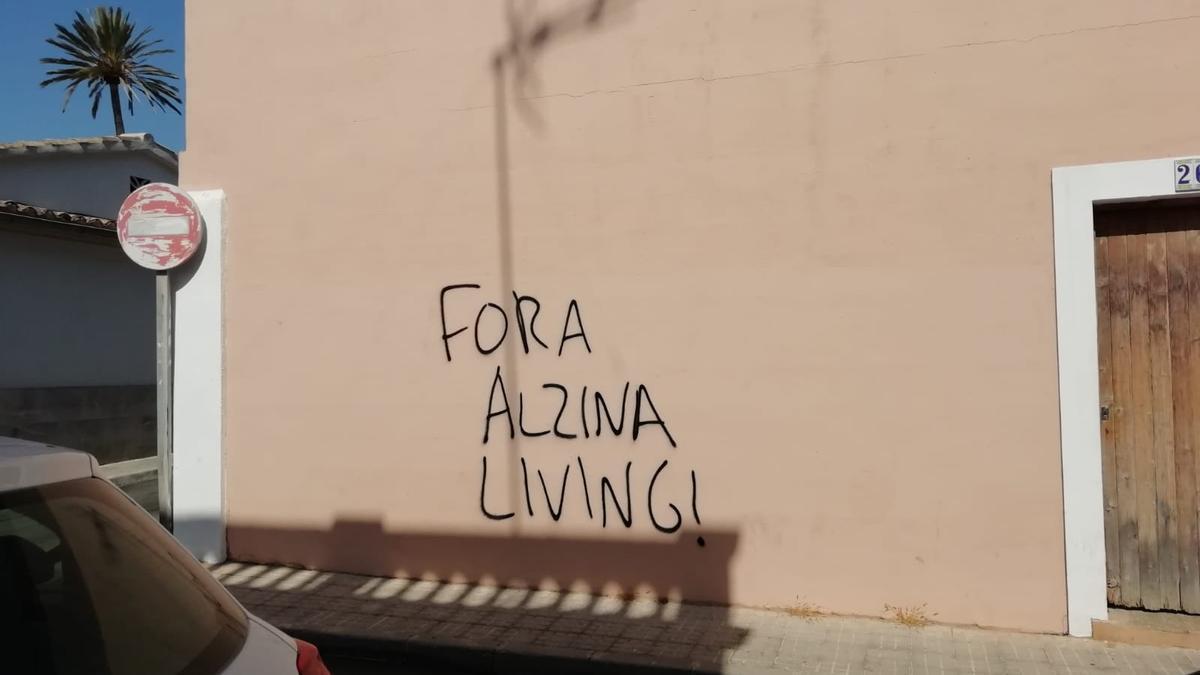 FORA
ALZINA
LIVING!
26